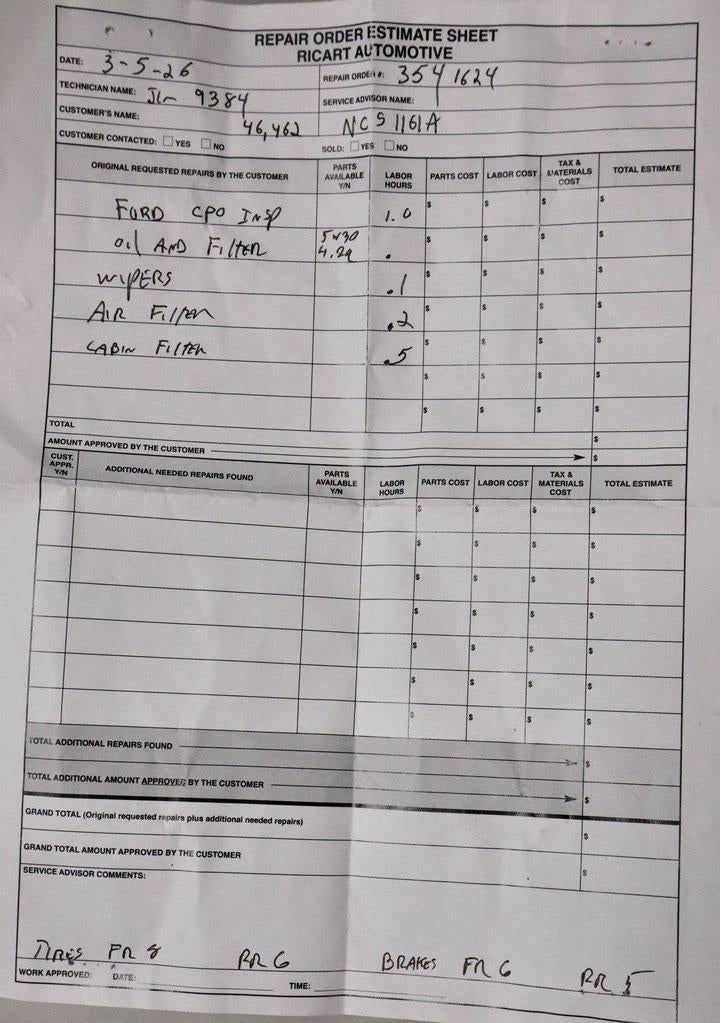 REPAIR ORDER ESTIMATE SHEET
RICART AUTOMOTIVE
DATE: 3-5-26
REPAIR ORDER #: 3541624
TECHNICIAN NAME: 9384
SERVICE ADVISOR NAME:
CUSTOMER'S NAME: 46,462 NCS1161A
CUSTOMER CONTACTED: YES NO
SOLD: YES NO
ORIGINAL REQUESTED REPAIRS BY THE CUSTOMER PARTS AVAILABLE Y/N LABOR HOURS PARTS COST LABOR COST TAX & MATERIALS COST TOTAL ESTIMATE
FORD CPO INSP 1.0 $ $ $ $
OIL AND FILTER 5W30 4.2q . $ $ $ $
WIPERS .1 $ $ $ $
AIR FILTER .2 $ $ $ $
CABIN FILTER .5 $ $ $ $
$ $ $ $
$ $ $ $
TOTAL $
AMOUNT APPROVED BY THE CUSTOMER $
CUST. APPR. Y/N ADDITIONAL NEEDED REPAIRS FOUND PARTS AVAILABLE Y/N LABOR HOURS PARTS COST LABOR COST TAX & MATERIALS COST TOTAL ESTIMATE
$ $ $ $
$ $ $ $
$ $ $ $
$ $ $ $
$ $ $ $
$ $ $ $
$ $ $ $
TOTAL ADDITIONAL REPAIRS FOUND $
TOTAL ADDITIONAL AMOUNT APPROVED BY THE CUSTOMER $
GRAND TOTAL (Original requested repairs plus additional needed repairs) $
GRAND TOTAL AMOUNT APPROVED BY THE CUSTOMER $
SERVICE ADVISOR COMMENTS:
TIRES FR 8 RR 6 BRAKES FR 6 RR 5
WORK APPROVED: DATE: TIME: